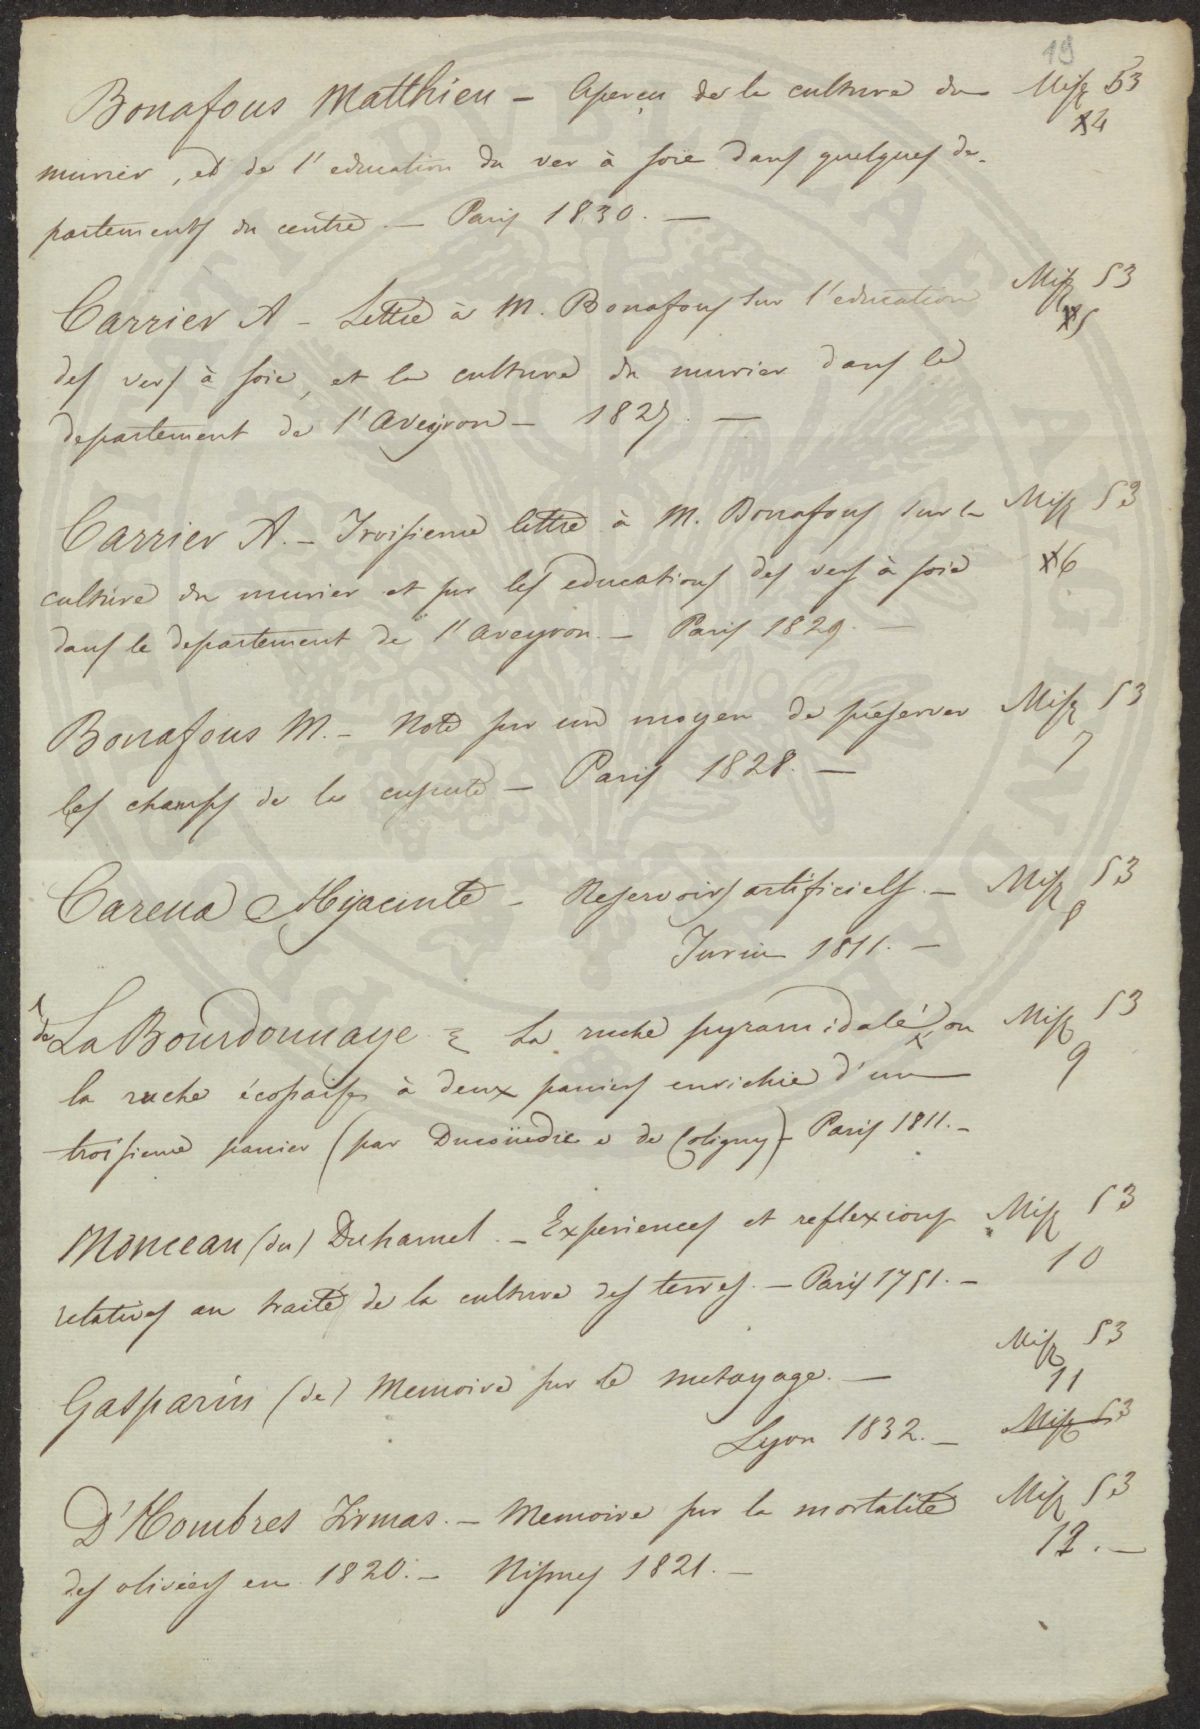 19
Bonafous Matthieu - Aperçu de la culture du Misz 53
4
murier, et de l'education du ver à soie dans quelques de-
partements du centre. — Paris 1830. —
Carrier A - Lettre à M. Bonafous sur l'education Misz 53
5
des vers à soie, et la culture du murier dans le
departement de l'Aveyron - 1827. —
Carrier A. - Troisieme lettre à M. Bonafous sur la Misz 53
culture du murier et sur les educations des vers à soie 6
dans le departement de l'Aveyron. - Paris 1829. —
Bonafous M. - Note sur un moyen de préserver Misz 53
7
les champs de la cuscute - Paris 1828. —
Carena Hyacinte - Reservoirs artificiels. - Misz 53
8
Turin 1811. —
de La Bourdonnaye - La ruche pyramidale, ou Misz 53
la ruche écossaise à deux paniers enrichie d'un 9
troisieme panier (par Ducoüedic e de Coligny) - Paris 1811. -
Monceau (du) Duhamel. - Experiences et reflexions Misz 53
10
relatives au traité de la culture des terres. - Paris 1751. -
Misz 53
Gasparin (de) Memoire sur le metayage. — 11
Lyon 1832. - Misz 53
D'Hombres Firmas. - Memoire sur la mortalité Misz 53
12. —
des oliviers en 1820. - Nismes 1821. —